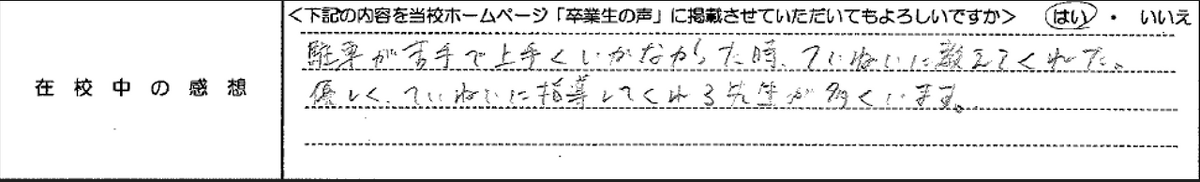 <下記の内容を当校ホームページ「卒業生の声」に掲載させていただいてもよろしいですか> はい ・ いいえ
在校中の感想
駐車が苦手で上手くいかなかった時、ていねいに教えてくれた。
優しく、ていねいに指導してくれる先生が多くいます。